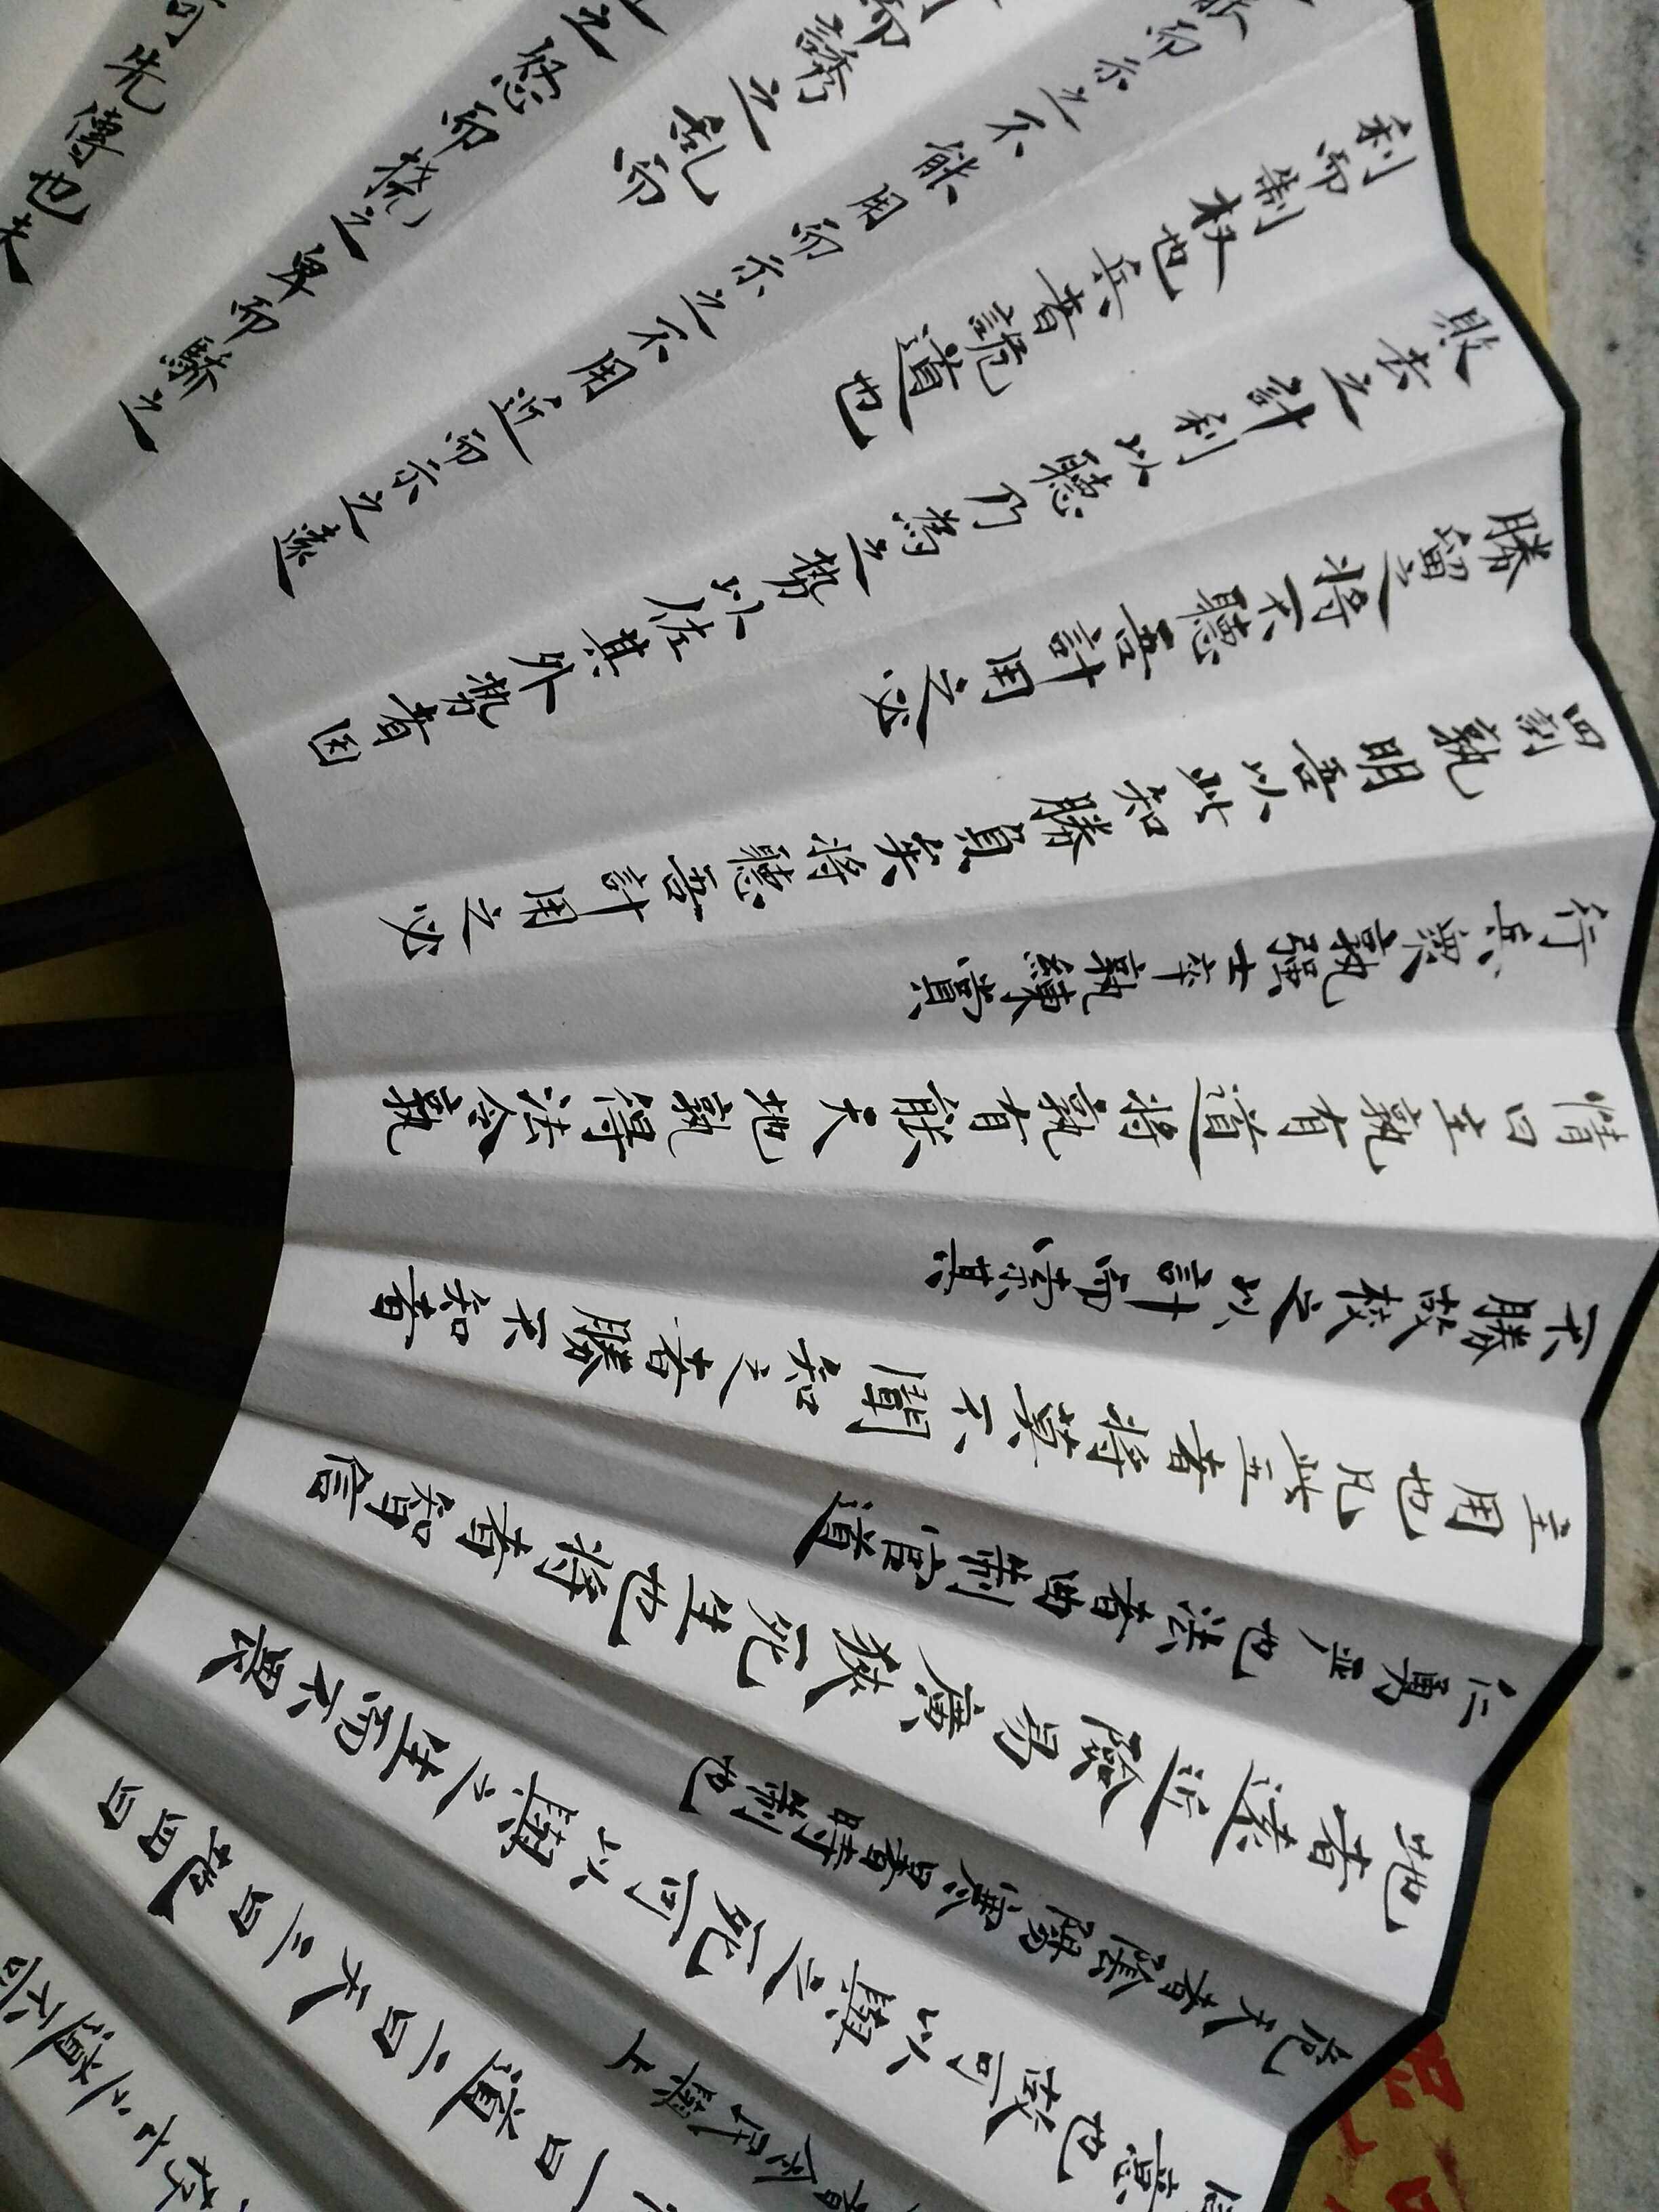 存亡之道不可
一曰道二曰天三曰地四曰
者令民與上
同意也故可以與之死可以與之生而不畏
危天者陰陽寒暑時制也
地者遠近險易廣狹死生也將者智信
仁勇嚴也法者曲制官道
主用也凡此五者將莫不聞知之者勝不知者
不勝故校之以計而索其
情曰主孰有道將孰有能天地孰得法令孰
行兵眾孰強士卒孰練賞
罰孰明吾以此知勝負矣將聽吾計用之必
勝留之將不聽吾計用之必
敗去之計利以聽乃為之勢以佐其外勢者因
利而制权也兵者詭道也
能而示之不能用而示之不用近而示之遠
而誘之乱而
之怒而撓之卑而驕之
可先傳也夫